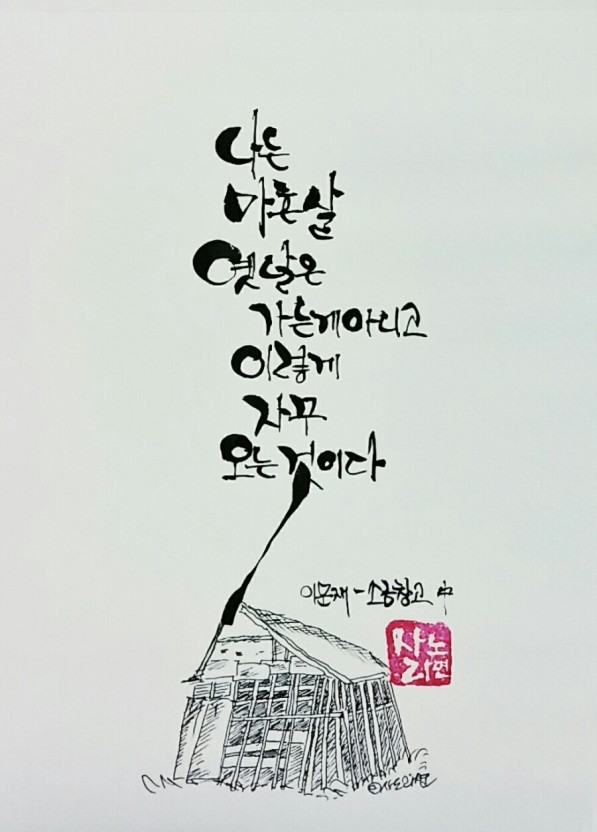 나는
마흔살
옛날은
가는게아니고
이렇게
자꾸
오는것이다
이문재-소금창고 中
사노
라면
©사노라면